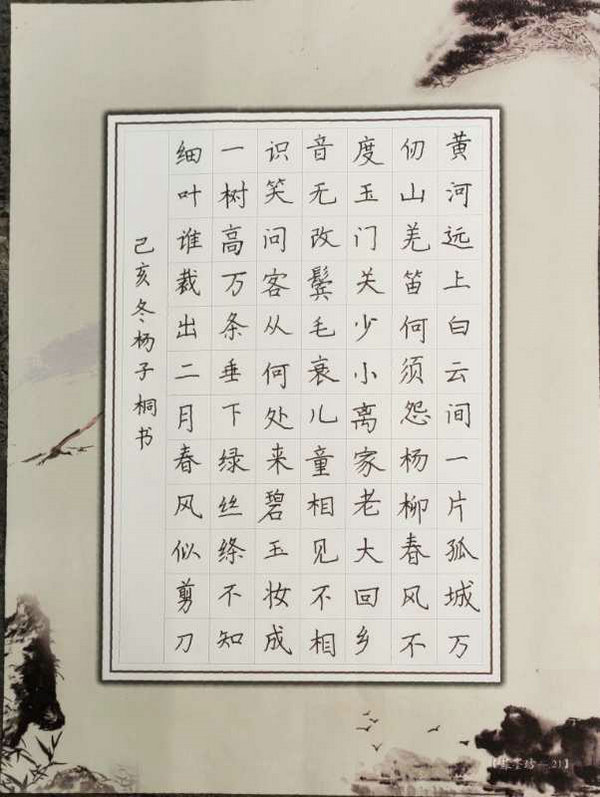 黄河远上白云间一片孤城万
仞山羌笛何须怨杨柳春风不
度玉门关少小离家老大回乡
音无改鬓毛衰儿童相见不相
识笑问客从何处来碧玉妆成
一树高万条垂下绿丝绦不知
细叶谁裁出二月春风似剪刀
己亥冬杨子桐书